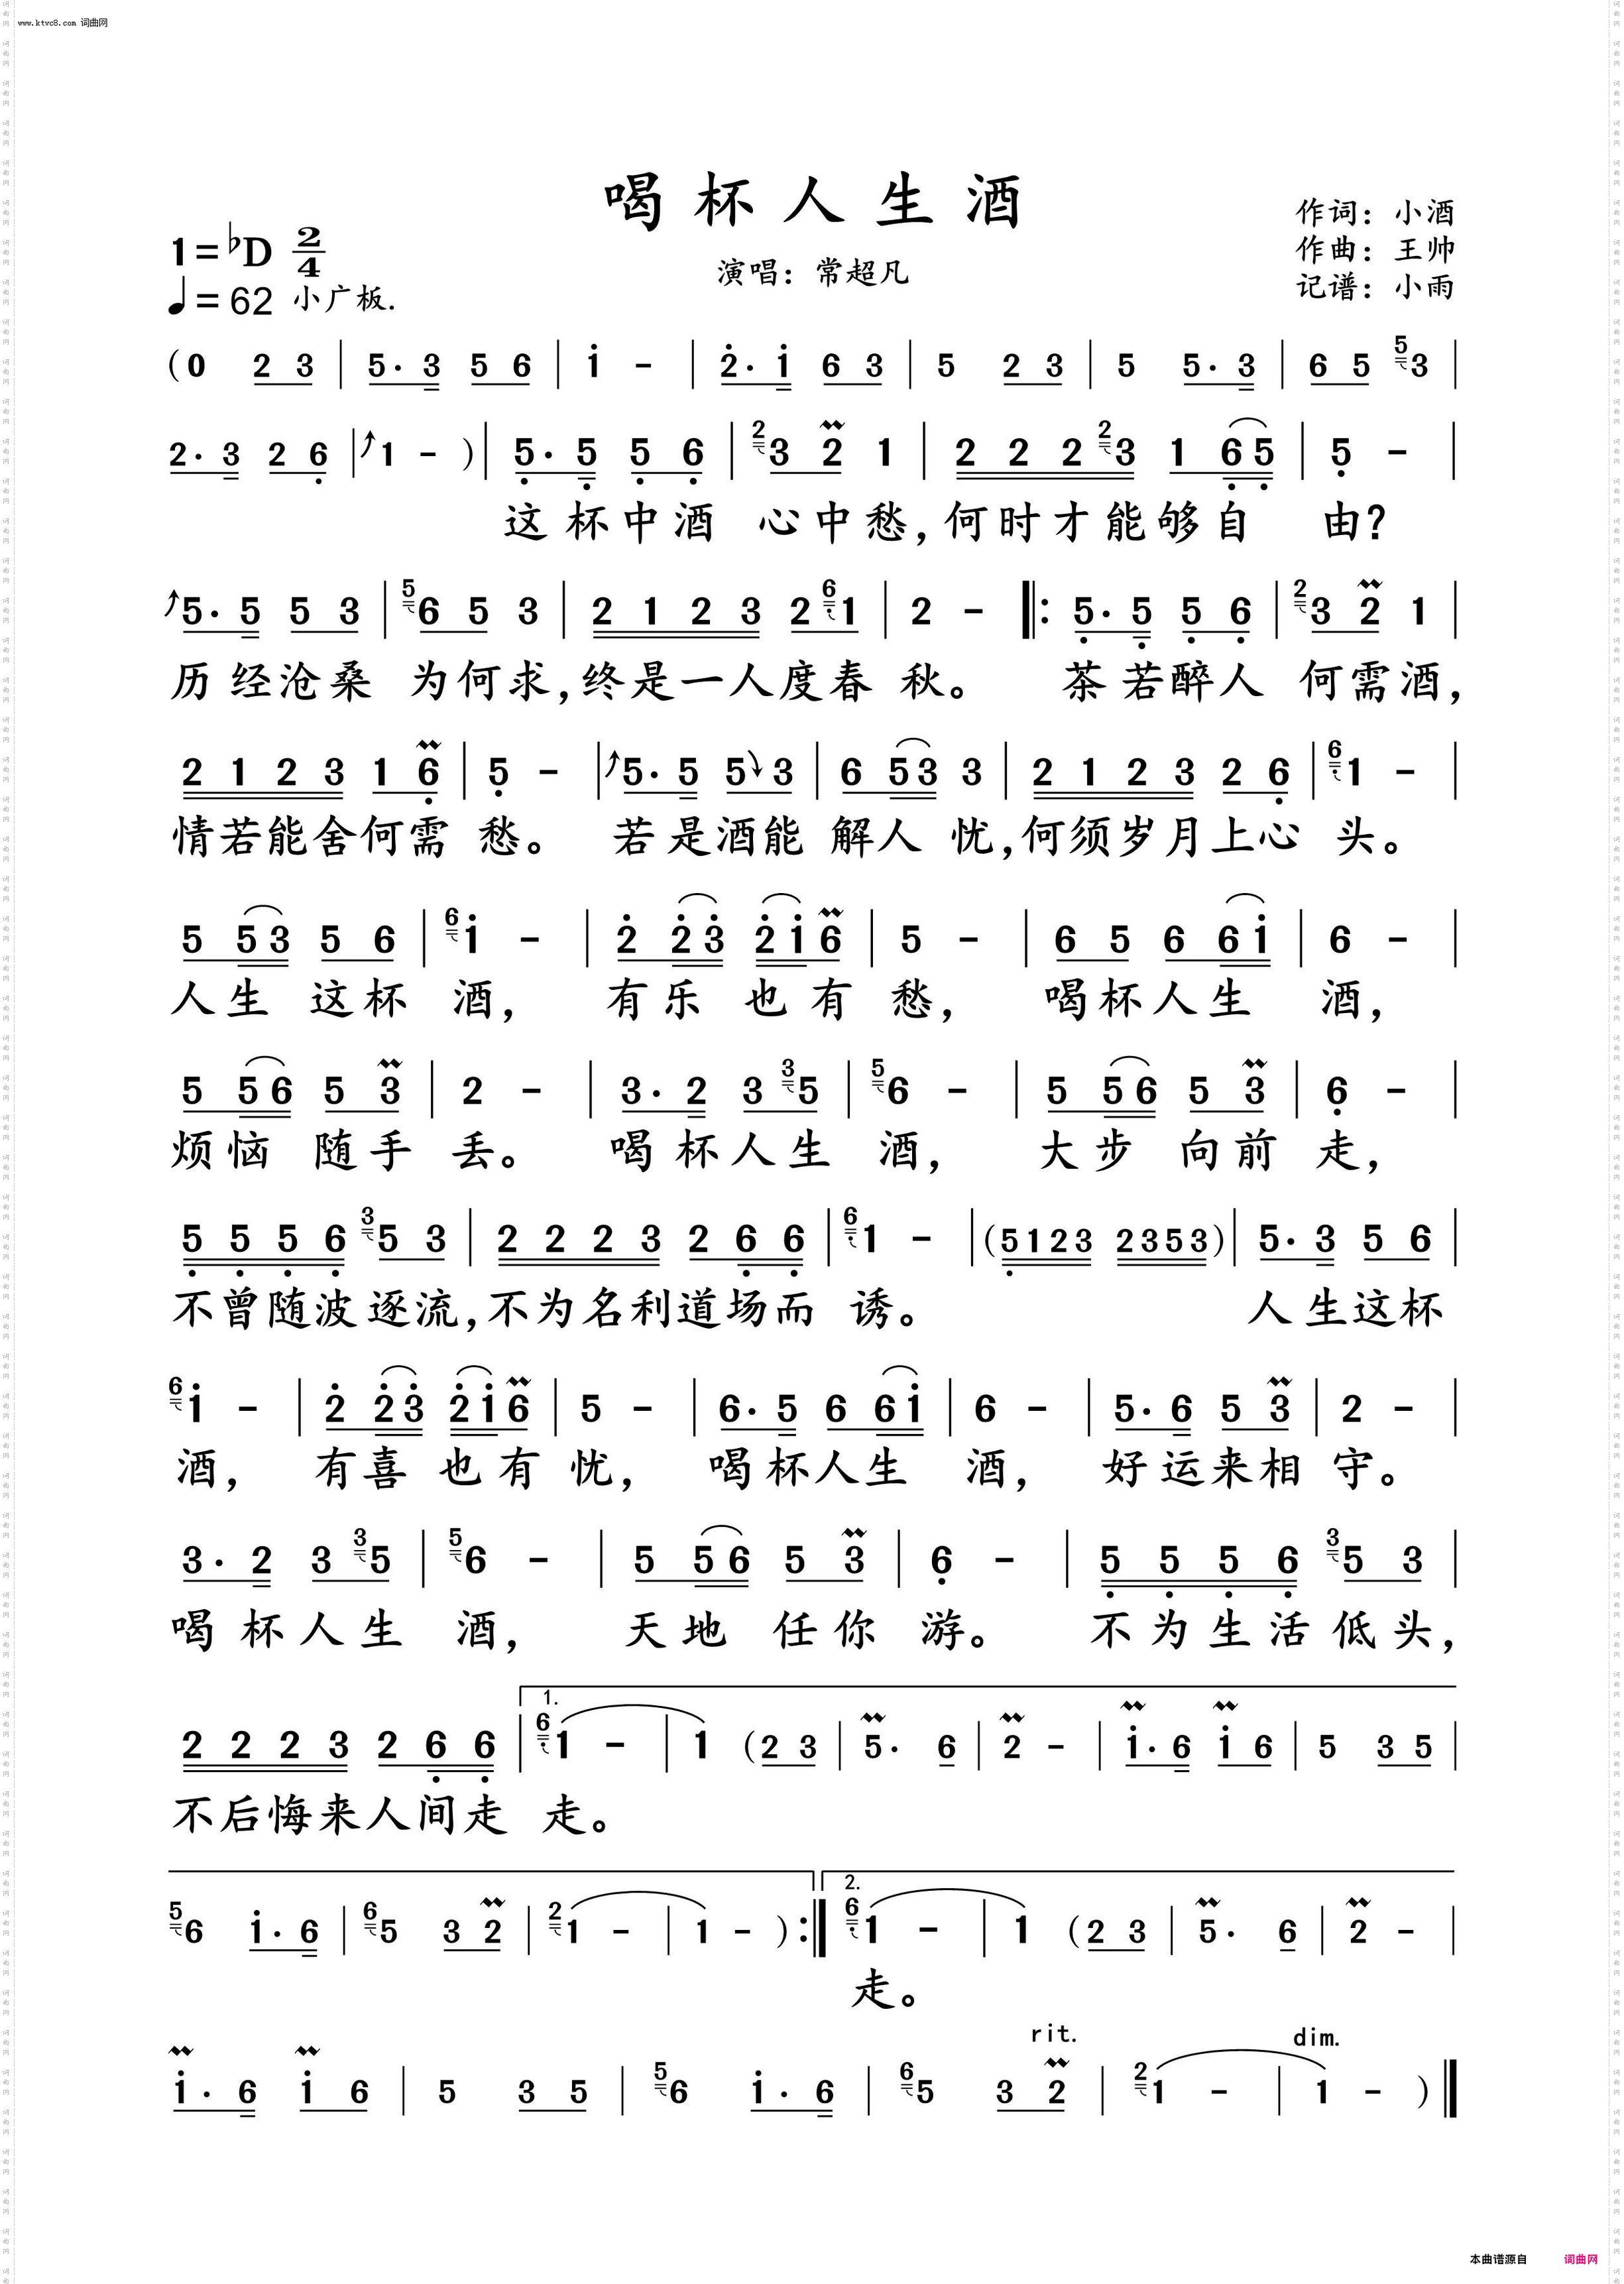 www.ktvc8.com 词曲网
喝杯人生酒
作词：小酒
1=♭D 2/4
作曲：王帅
演唱：常超凡
记谱：小雨
♩=62 小广板.
(0 2 3 | 5· 3 5 6 | i - | 2· i 6 3 | 5 2 3 | 5 5· 3 | 6 5 5 3 |
2· 3 2 6 | 1 - ) | 5· 5 5 6 | 2 3 2 1 | 2 2 2 2 3 1 6 5 | 5 - |
这杯中酒 心中愁,何时才能够自 由?
5· 5 5 3 | 5 6 5 3 | 2 1 2 3 2 6 1 | 2 - |: 5· 5 5 6 | 2 3 2 1 |
历经沧桑 为何求,终是一人度春 秋。 茶若醉人 何需酒,
2 1 2 3 1 6 | 5 - | 5· 5 5 3 | 6 5 3 3 | 2 1 2 3 2 6 | 6 1 - |
情若能舍何需 愁。 若是酒能 解人 忧,何须岁月上心 头。
5 5 3 5 6 | 6 i - | 2 2 3 2 i 6 | 5 - | 6 5 6 6 i | 6 - |
人生 这杯 酒, 有乐 也有 愁, 喝杯人生 酒,
5 5 6 5 3 | 2 - | 3· 2 3 3 5 | 5 6 - | 5 5 6 5 3 | 6 - |
烦恼 随手 丢。 喝杯人生 酒, 大步 向前 走,
5 5 5 6 3 5 3 | 2 2 2 3 2 6 6 | 6 1 - | (5 1 2 3 2 3 5 3) | 5· 3 5 6 |
不曾随波逐流,不为名利道场而 诱。 人生这杯
6 i - | 2 2 3 2 i 6 | 5 - | 6· 5 6 6 i | 6 - | 5· 6 5 3 | 2 - |
酒, 有喜 也有 忧, 喝杯人生 酒, 好运来相 守。
3· 2 3 3 5 | 5 6 - | 5 5 6 5 3 | 6 - | 5 5 5 6 3 5 3 |
喝杯人生 酒, 天地 任你 游。 不为生活低头,
1.
2 2 2 3 2 6 6 | 6 1 - | 1 (2 3 | 5· 6 | 2 - | i· 6 i 6 | 5 3 5 |
不后悔来人间走 走。
2.
5 6 i· 6 | 6 5 3 2 | 2 1 - | 1 - ) :| 6 1 - | 1 (2 3 | 5· 6 | 2 - |
走。
rit. dim.
i· 6 i 6 | 5 3 5 | 5 6 i· 6 | 6 5 3 2 | 2 1 - | 1 - ) ||
本曲谱源自 词曲网